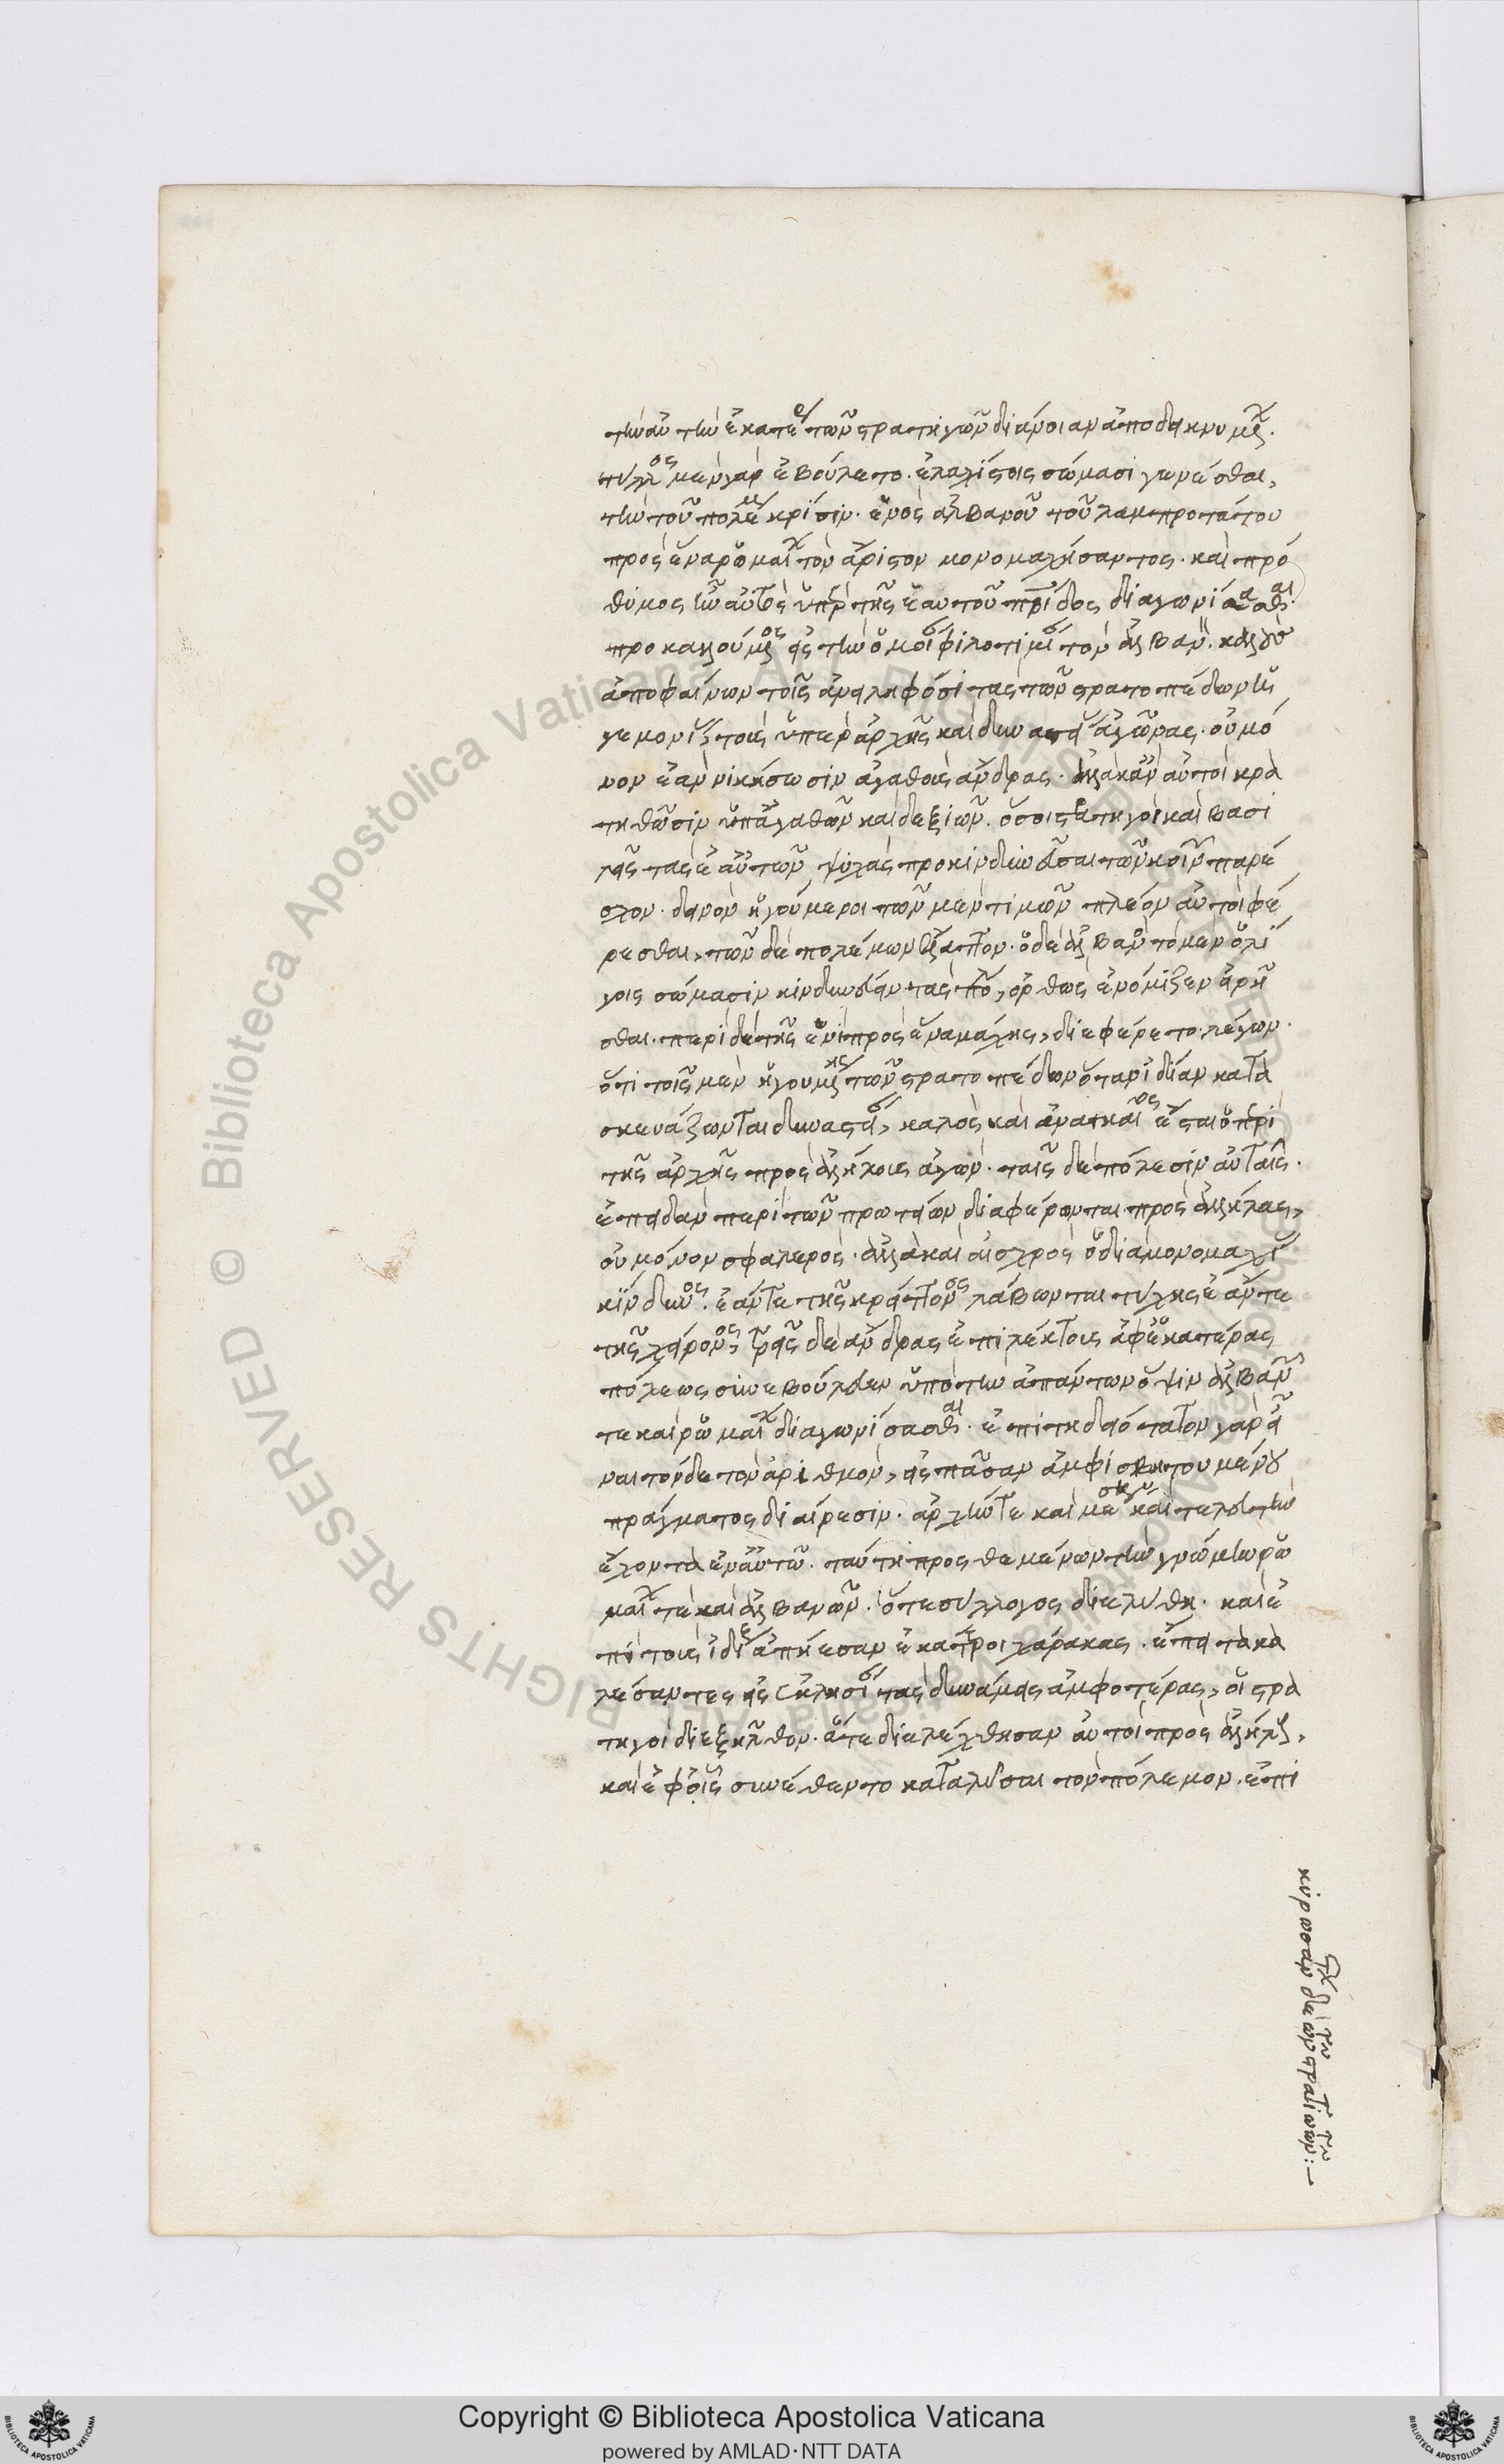 τὴν αὐτὴν ἑκατε τῶν στρατηγῶν διάνοιαν ἀποδεικνυμεν.
τύλλος μὲν γὰρ ἐβούλετο. ἐλαχίστοις σώμασι γενέσθαι,
τὴν τοῦ πολέμ κρίσιν. ἑνὸς ἀλβανοῦ τοῦ λαμπροτάτου
πρὸς ἕνα ῥωμαι τὸν ἄριστον μονομαχήσαντος. καὶ πρό
θυμος ἦν αὐτὸς ὑπὲρ τῆς ἑαυτοῦ πρίδος διαγωνίσασθαι.
προκαλούμενος εἰς τὴν ὁμοί φιλοτιμί τὸν ἀλβαν. καλοὺς
ἀποφαίνων τοῖς ἀνειληφόσι τὰς τῶν στρατοπέδων ἡ
γεμονίας τοὺς ὑπὲρ ἀρχῆς καὶ δυναστεί ἀγῶνας. οὐ μό
νον ἐὰν νικήσωσιν ἀγαθοὺς ἄνδρας. ἀλλὰ κἂν αὐτοὶ κρα
τηθῶσιν ὑπ' ἀγαθῶν καὶ δεξιῶν. ὅσοι στρατηγοὶ καὶ βασι
λεῖς τὰς ἑαυτῶν ψυχὰς προκινδυνεῦσαι τῶν κοινῶν παρέ
σχον. δεινὸν ἡγούμενοι τῶν μὲν τιμῶν πλέον αὐτοὶ φέ
ρεσθαι, τῶν δὲ πολέμων ἔλαττον. ὁ δὲ ἀλβαν τὸ μὲν ὀλί
γοις σώμασιν κινδυνεύειν τὰς πό, ὀρθῶς ἐνόμιζεν εἰρῆ
σθαι. περὶ δὲ τῆς ἑνὶ πρὸς ἕνα μάχης, διεφέρετο. λέγων.
ὅτι τοῖς μὲν ἡγουμένοις τῶν στρατοπέδων ὅταν ἰδίαν κατα
σκευάζωνται δυναστεί, καλὸς καὶ ἀναγκαῖος ἔσται ὁ περὶ
τῆς ἀρχῆς πρὸς ἀλλήλους ἀγών. ταῖς δὲ πόλεσιν αὐταῖς.
ἐπειδὰν περὶ τῶν πρωτείων διαφέρωνται πρὸς ἀλλήλας,
οὐ μόνον σφαλερὸς. ἀλλὰ καὶ αἰσχρὸς ὁ διὰ μονομαχί
κίνδυνος. ἐάν τε τῆς κρείττονος λάβωνται τύχης ἐάν τε
τῆς χείρονος, τρεῖς δὲ ἄνδρας ἐπιλέκτους ἀφ' ἑκατέρας
πόλεως συνεβούλευεν ὑπὸ τὴν ἁπάντων ὄψιν ἀλβαν
τε καὶ ῥωμαι διαγωνίσασθαι. ἐπιτηδειότατον γὰρ εἶ
ναι τόνδε τὸν ἀριθμὸν, εἰς πᾶσαν ἀμφισβητουμένου
πράγματος διαίρεσιν. ἀρχήν τε καὶ μέσην καὶ τελευτὴν
ἔχοντα ἐν αὑτῷ. ταύτη προσθεμένων τὴν γνώμην ῥω
μαι τε καὶ ἀλβανῶν. ὅ τε σύλλογος διελύθη. καὶ ἐ
πὶ τοὺς ἰδί ἀπῄεσαν ἑκάτεροι χάρακας. ἔπειτα κα
λέσαντες εἰς ἐκκλησί τὰς δυνάμεις ἀμφοτέρας, οἱ στρα
τηγοὶ διεξῆλθον. ἅ τε διελέχθησαν αὐτοὶ πρὸς ἀλλήλους,
καὶ ἐφ' οἷς συνέθεντο καταλῦσαι τὸν πόλεμον. ἐπι
κυρωσάν δὲ τῶν στρατιωτῶν :-